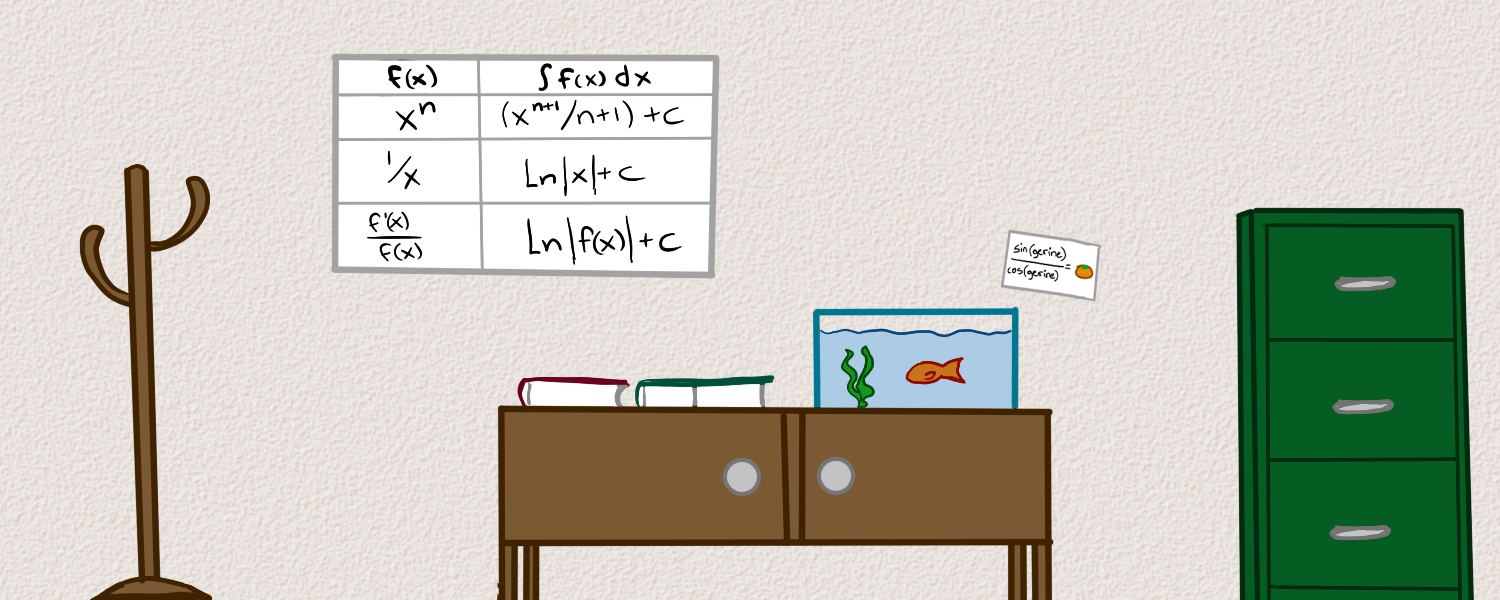 f(x) ∫f(x) dx
xⁿ (xⁿ⁺¹/n+1) + C
1/x Ln|x| + C
f'(x)/f(x) Ln|f(x)| + C
sin(gerine)
cos(gerine) =